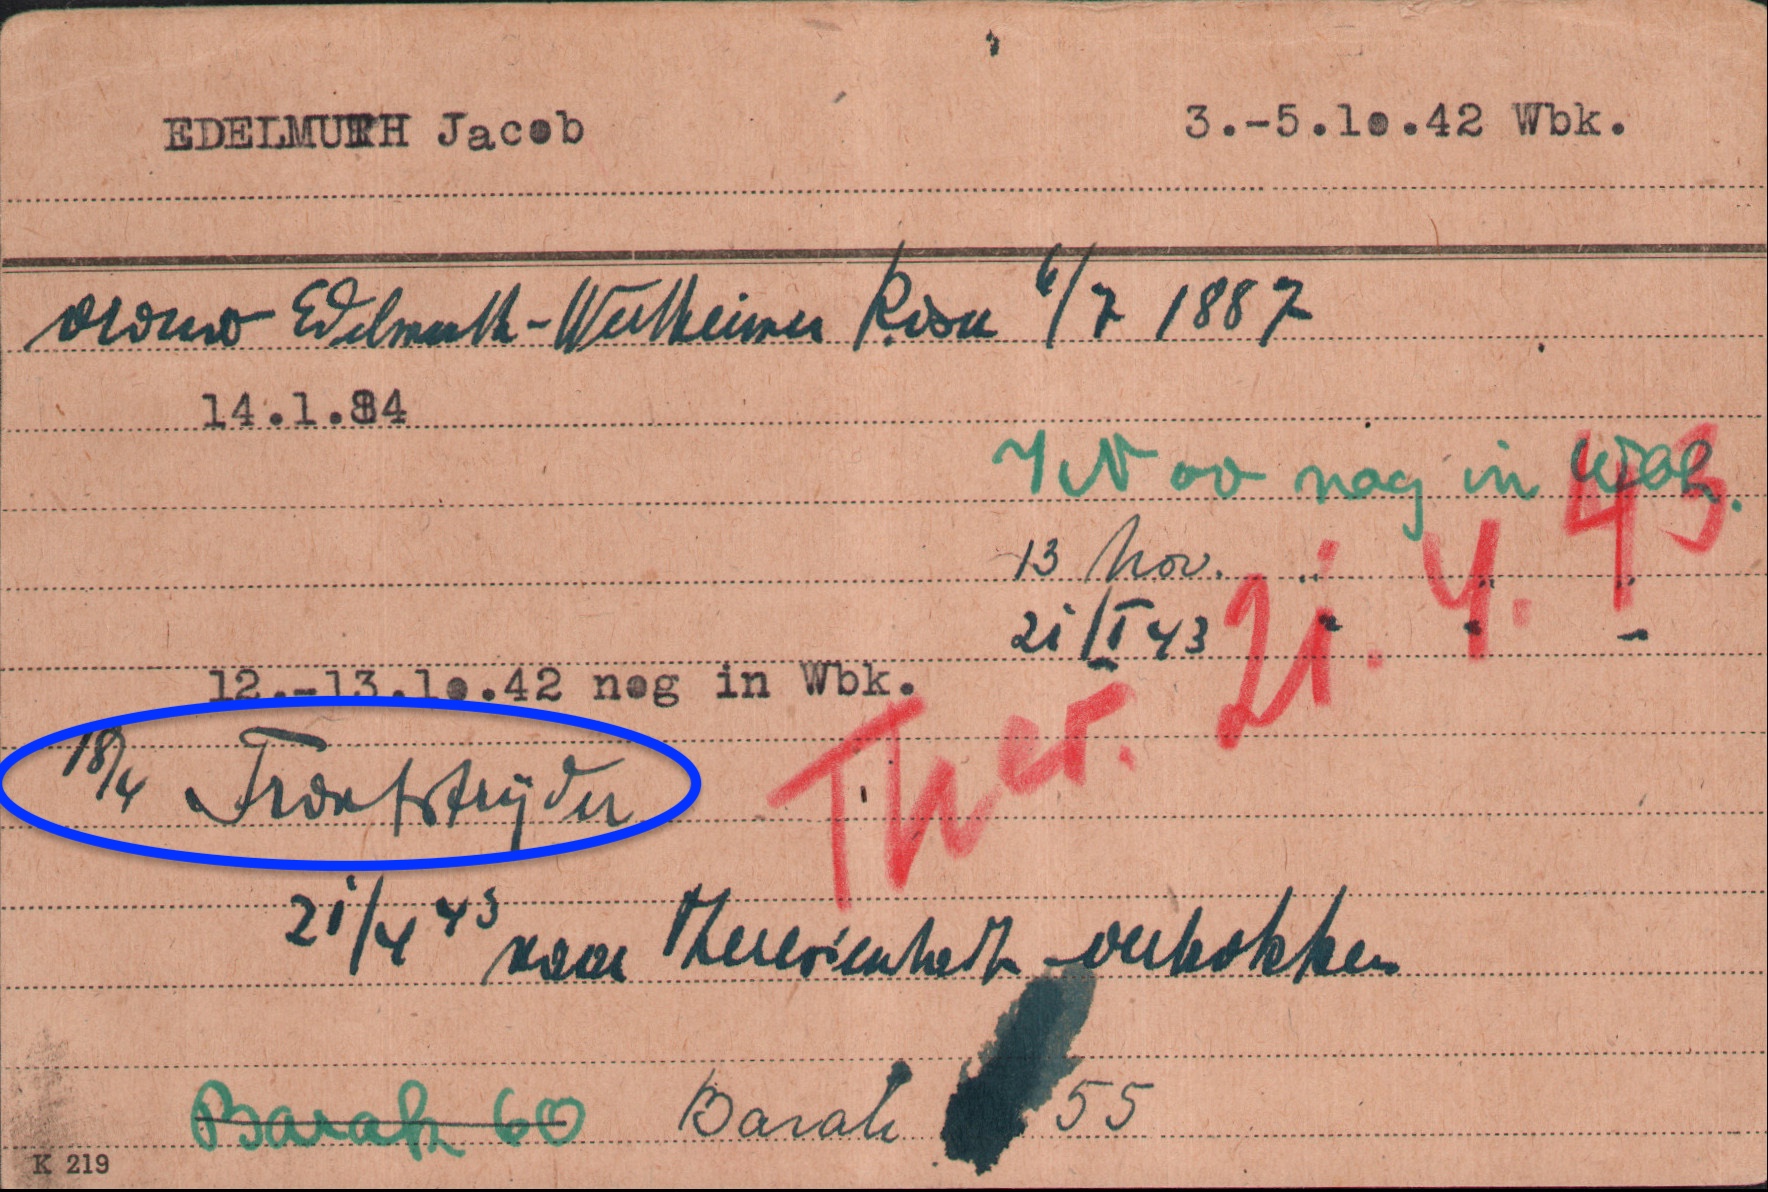 EDELMUTH Jacob 3.-5.10.42 Wbk.
vrouw Edelmuth-Wertheimer Rosa 6/7 1887
14.1.84
7 Nov nog in Wbk.
13 Nov. " " "
21/I 43 " " "
12.-13.10.42 nog in Wbk.
18/4 Frontstrijder
Ther. 21.4.43
21/4 43 naar Theresienstadt vertrokken
Barak 60 Barak 55
K 219